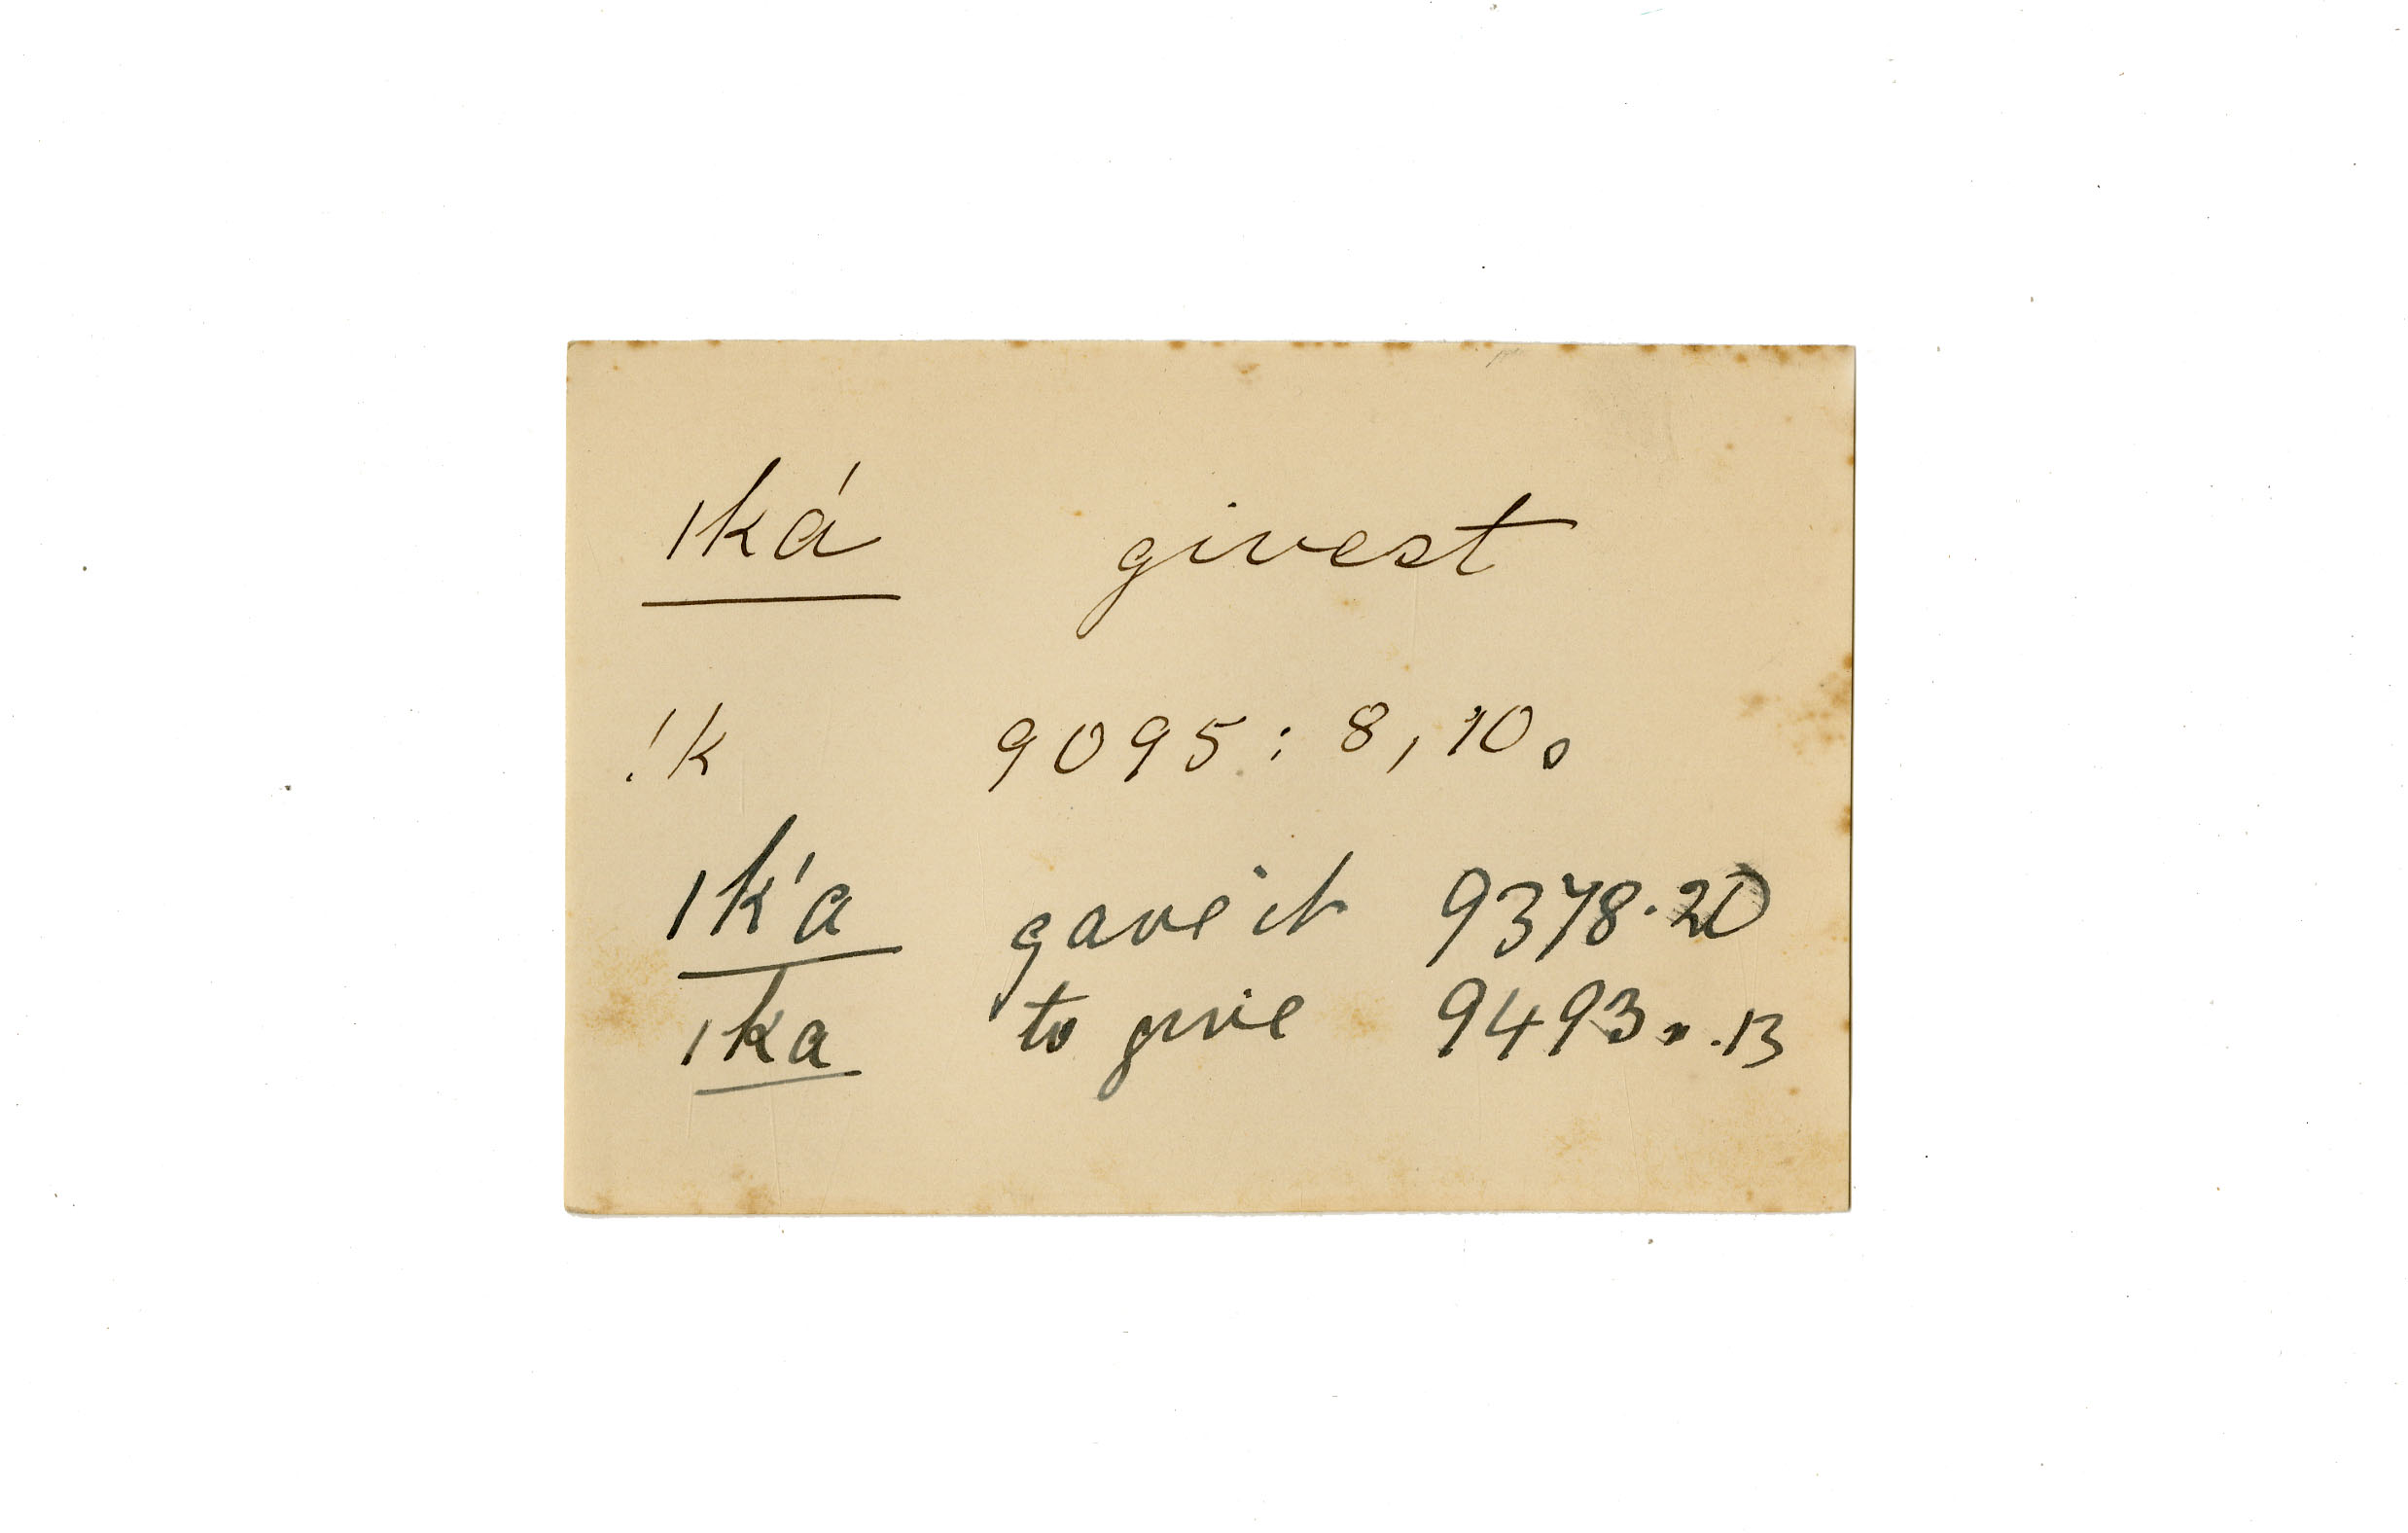 ıká givest
!k 9095: 8, 10.
ık'a gave it 9378.20
ıka to give 9493. .13